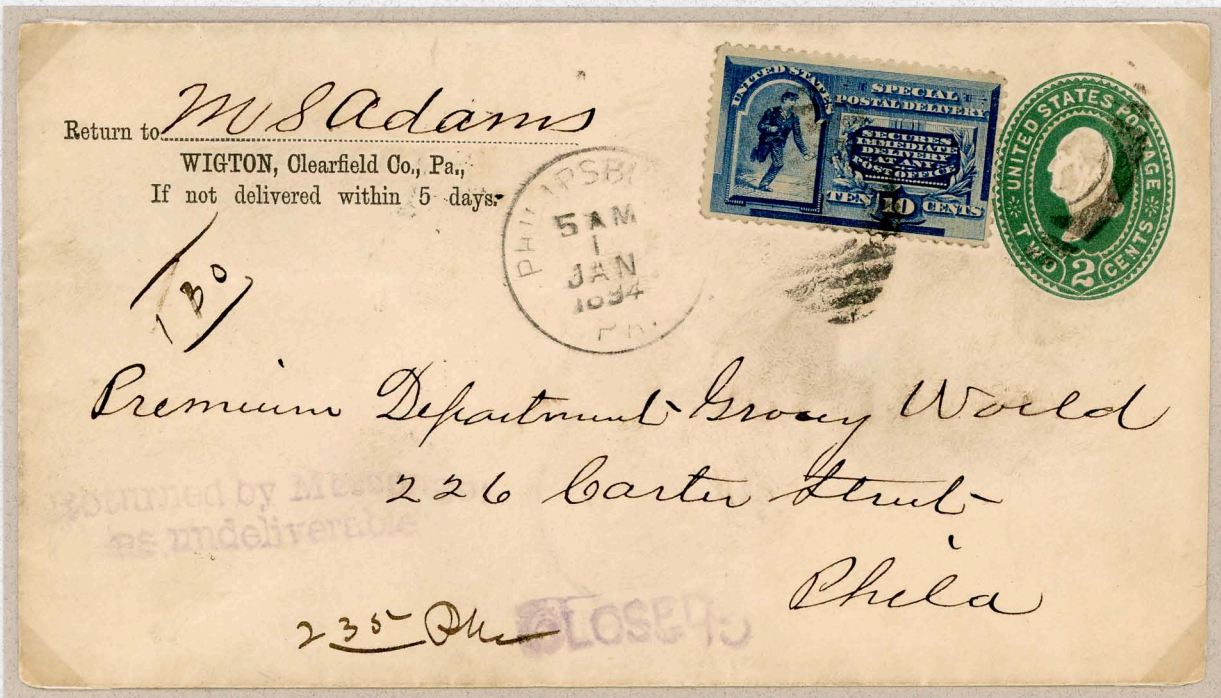 Return to M S Adams
WIGTON, Clearfield Co., Pa.,
If not delivered within 5 days.
UNITED STATES
SPECIAL
POSTAL DELIVERY
SECURES
IMMEDIATE
DELIVERY
AT ANY
POST OFFICE
TEN 10 CENTS
UNITED STATES POSTAGE
TWO 2 CENTS
5 AM
1
JAN
1894
PA.
Premium Department Grocy World
226 Carter Street
Phila
Returned by
as undeliverable
235
CLOSED